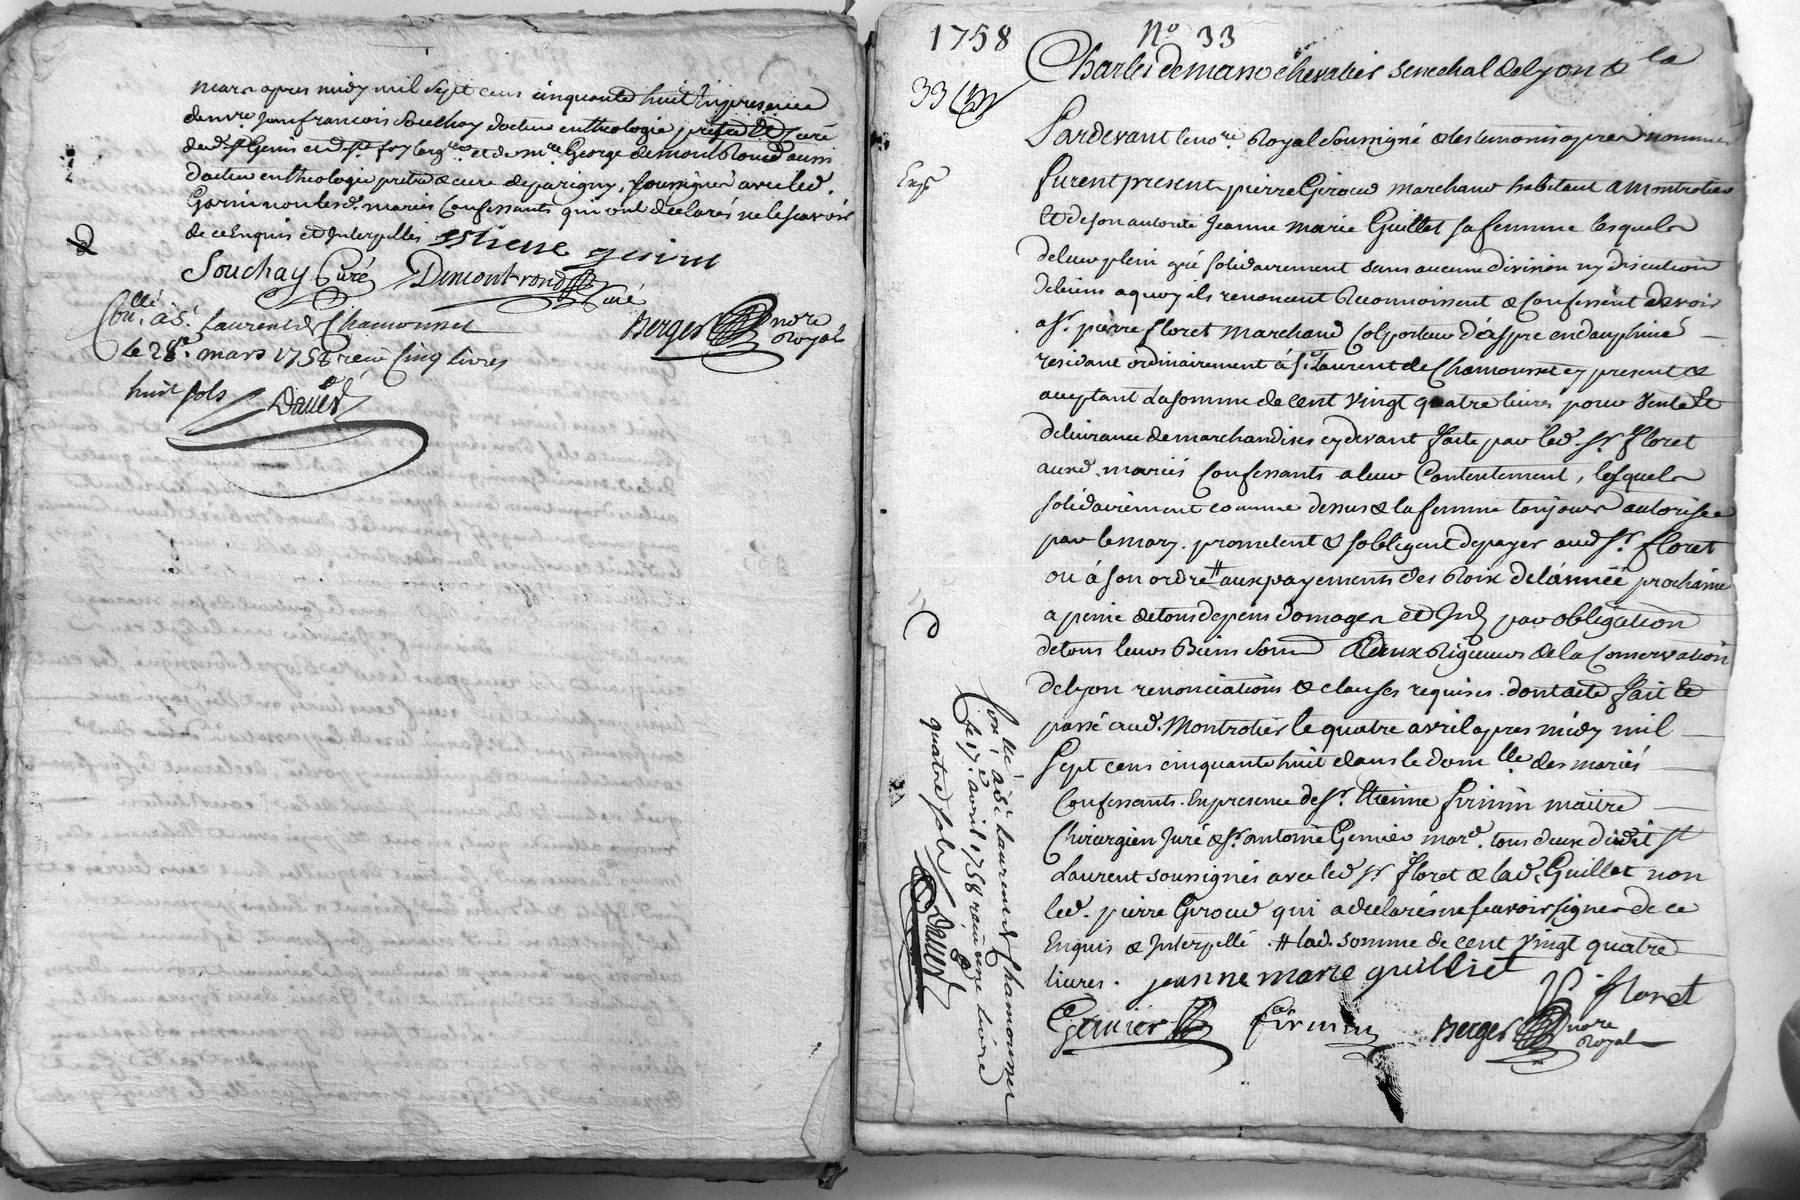 mars apres midy mil sept cens cinquante huit En presence
de mre jean francois Souchay docteur en theologie, prestre et Curé
dud. st Genis et de mre George demont Rond aussi
docteur en theologie pretre & cure de parigny, soussignés avec led.
Garin non lesd. mariés Confessants qui ont déclarés ne le scavoir
de ce Enquis et Interpellés
Souchay Curé Demontrond Curé
Berger nore Royal
Con.llé à St. Laurent de Chamousset
le 28e. mars 1758 reçu Cinq livres
huit sols Daved
1758 No 33
Charles de masso chevalier senechal de lyon & la
33
Pardevant le nore. Royal Soussigné & les temoins apres nommés
furent presents pierre Giroud marchand habitant a Montrotier
Et de son autorité Jeanne Marie Guillet sa femme lesquels
de leur plein gré solidairement sans aucune division ny discution
de biens a quoy ils renoncent Reconnoissent & Confessent devoir
a sr. pierre floret marchand Colporteur en dauphiné
residant ordinairement à st. Laurent de Chamousset cy present &
acceptant La somme de cent vingt quatre livres pour vente Et
delivrance de marchandises cy devant faite par led. sr. floret
auxd. mariés Confessants a leur Contentement, lesquels
solidairement comme dessus & la femme toujours autorisée
par le mary. promettent & s'obligent de payer aud. sr. floret
ou à son ordre # aux payements des Roix de l'année prochaine
a peine de tous depens domages et Int. par obligation
de tous leurs Biens Soum. & aux Rigueurs de la Conservation
de lyon renonciations & clauses requises. dont acte fait Et
passé aud. Montrotier le quatre avril apres midy mil
Sept cens cinquante huit dans le dom.lle des mariés
Confessants. En presence de sr. Etienne firmin maitre
Chirurgien Juré & sr. antoine Genier mard. tous deux dudit st
Laurent soussignés avec led. sr floret & lad. Guillet non
led. pierre Giroud qui a declaré ne scavoir signer de ce
Enquis & Interpellé. # lad. somme de cent vingt quatre
livres. jeanne marie guilliet
P. floret
Genier firmin Berger nore Royal
Con.llé à St Laurent de Chamousset
le 17. avril 1758 reçu une livre
quatre sols Daved